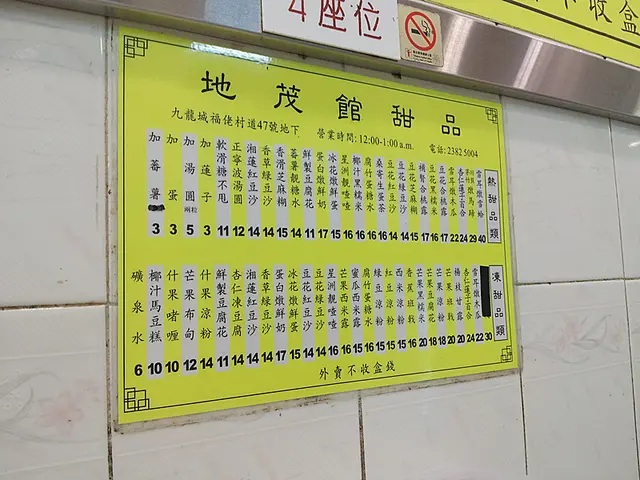 4座位
不收盒
地茂館甜品
九龍城福佬村道47號地下 營業時間: 12:00-1:00 a.m. 電話: 2382 5004
熱甜品類
雪耳燉雪蛤 40
杏仁蓮子百合 24
雪耳燉木瓜 22
豆花合桃露 17
豆花黑糯米 16
桶腎合桃露 17
豆花芝麻糊 15
豆花綠豆沙 14
豆花紅豆沙 14
桑寄生蛋茶
腐竹蛋糖水
椰汁黑糯米 16
星洲靚喳喳
冰花燉鮮蛋 15
蛋白燉鮮奶 17
蕃薯糖水 11
香滑芝麻糊 15
香草綠豆沙 14
湘蓮紅豆沙 14
正寧波湯圓 12
軟滑糖不甩 11
加蓮子 3
加湯圓 兩粒 5
加蛋 3
加蕃薯 3
凍甜品類
雪耳燉木瓜 22
杏仁蓮子百合 24
楊枝甘露 20
芒果班戟 20
芒果涼粉 18
芒果豆腐花 18
芒果黑糯米 20
香蕉班戟
西米涼粉
紅豆涼粉
綠豆涼粉
腐竹蛋糖水
蜜瓜西米露
芒果西米露
星洲靚喳喳
豆花綠豆沙 14
豆花紅豆沙 14
冰花燉鮮蛋 15
蛋白燉鮮奶 17
香草綠豆沙 14
湘蓮紅豆沙 14
杏仁凍豆腐 14
鮮製豆腐花 11
什果涼粉 14
芒果布甸 12
什果啫喱 10
椰汁馬豆糕 10
礦泉水 6
外賣不收盒錢